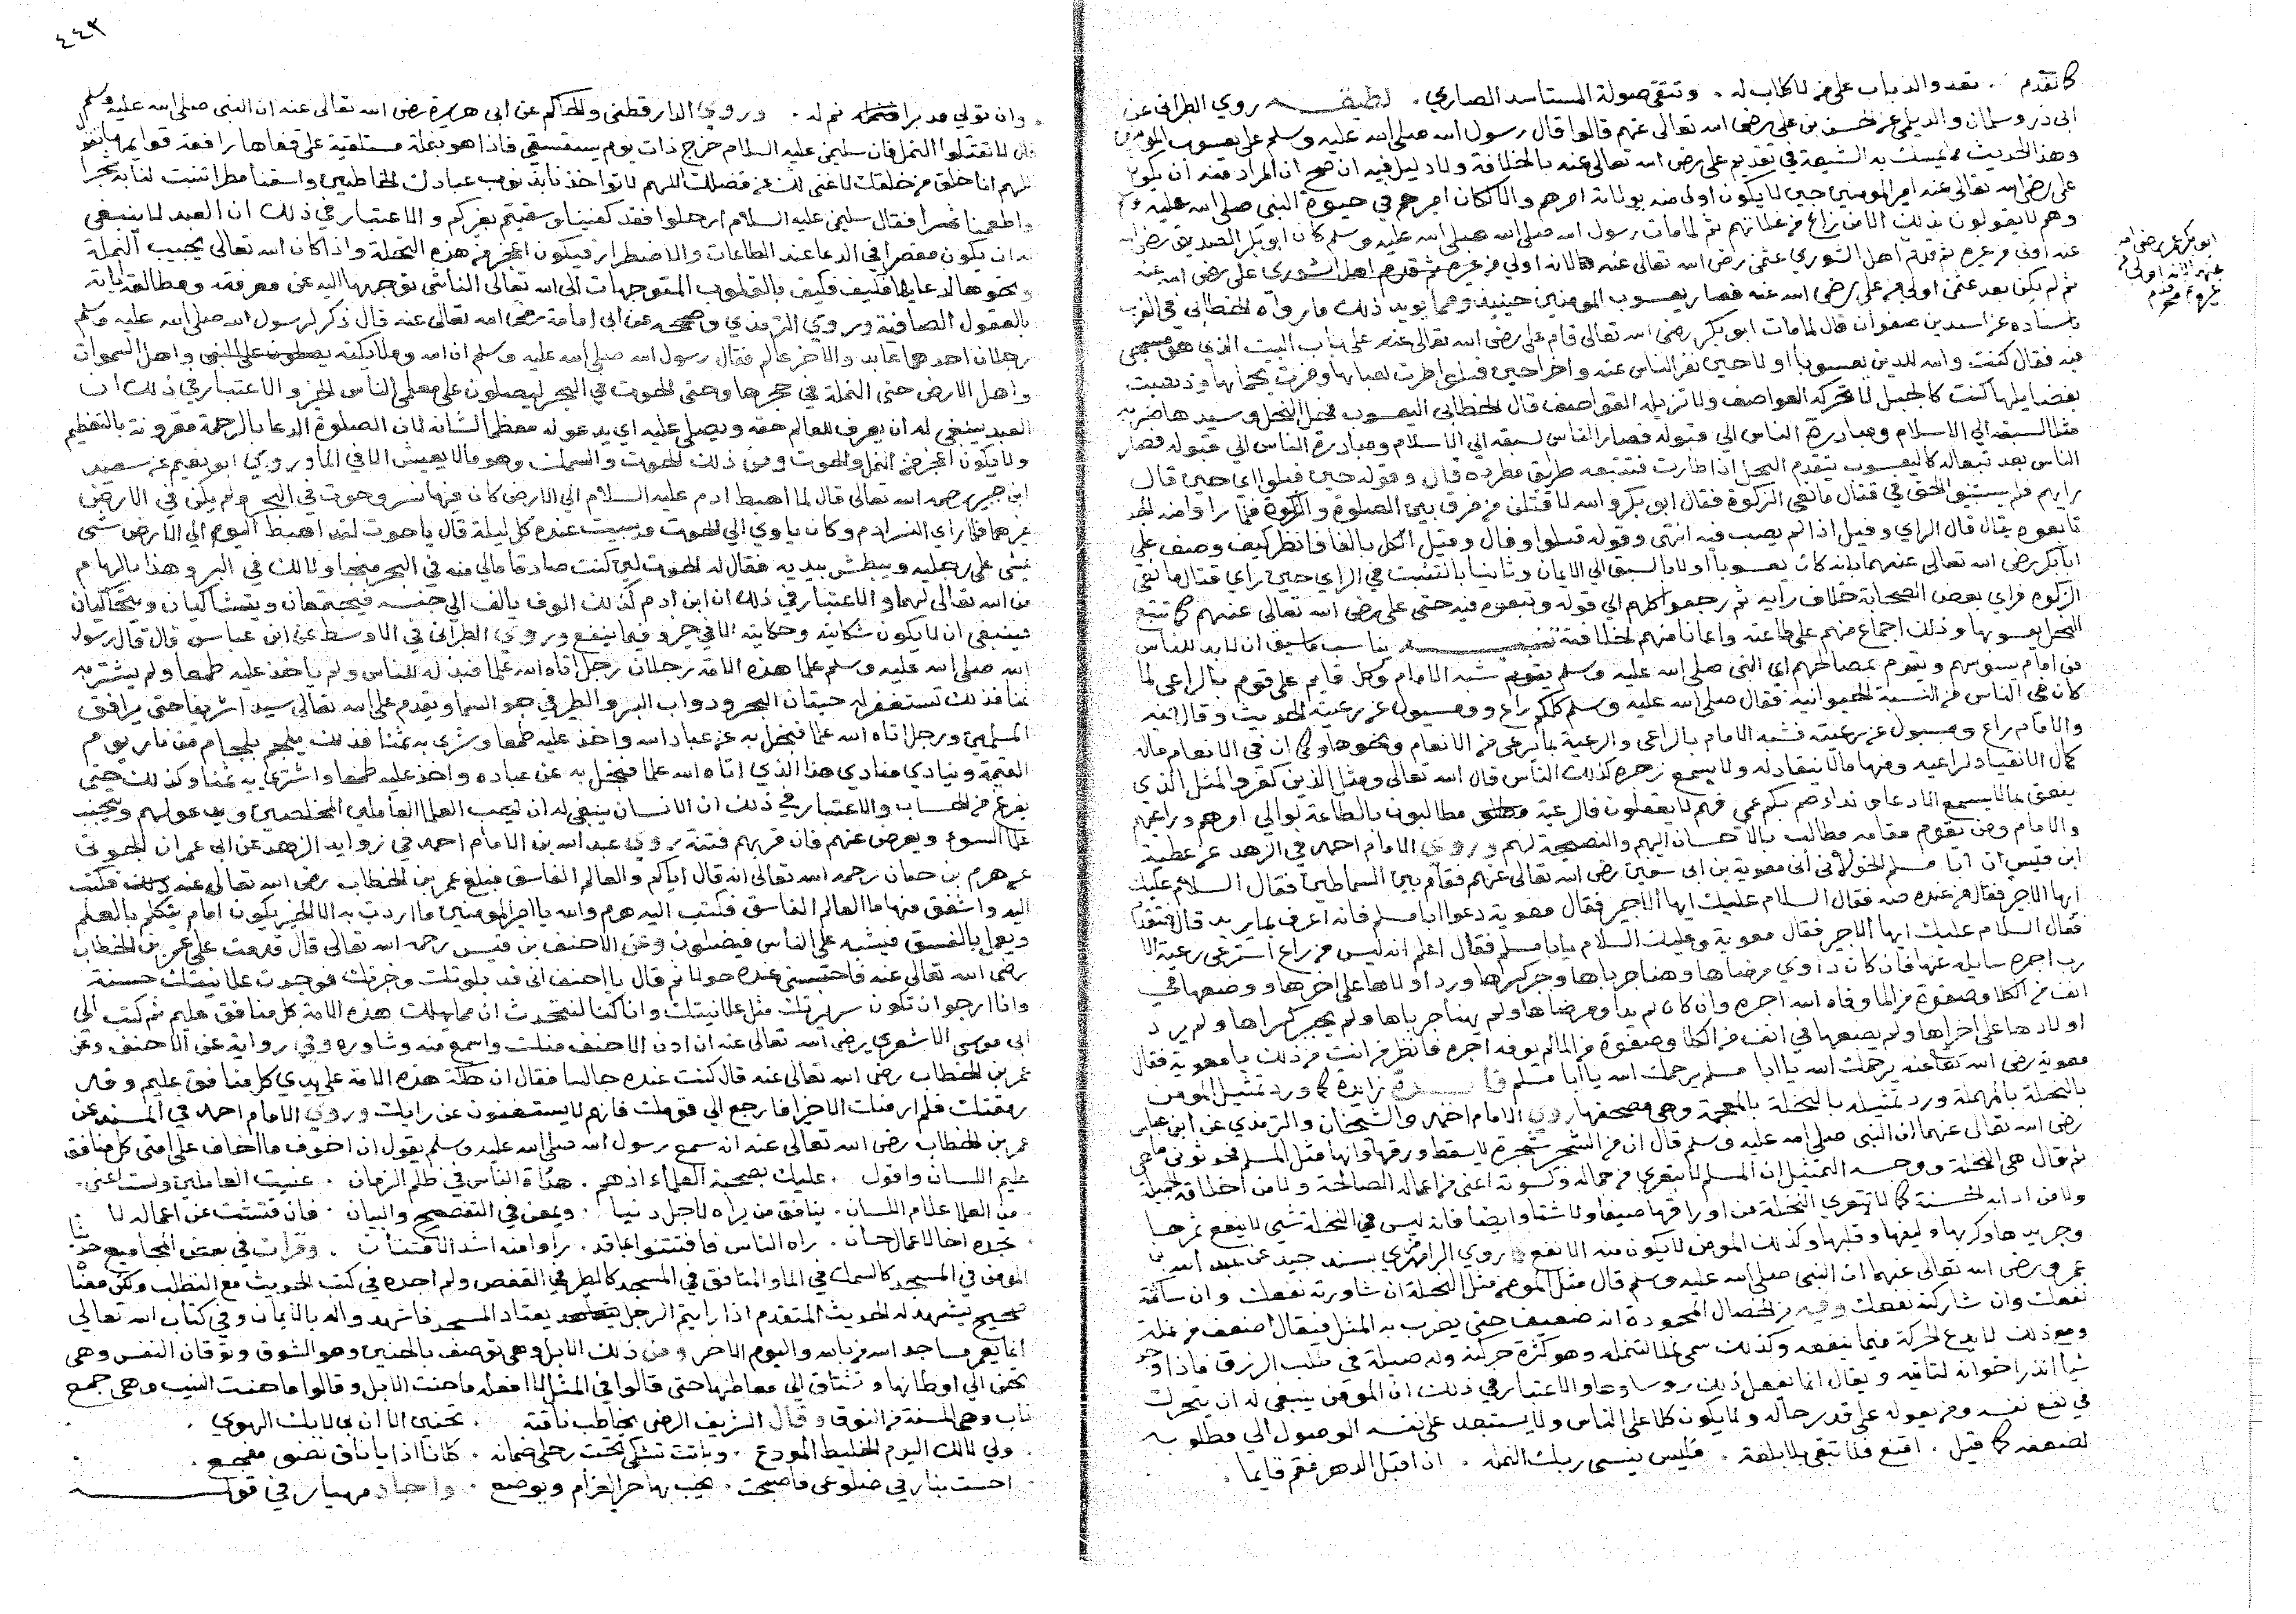 كما تقدم . تعدو الذياب على من لا كلاب له . وتتقي صولة المستاسد الضاري . لطيفة روي الطبراني عن
ابي ذر وسلمان والديلمي عن الحسن بن علي رضي الله تعالى عنهم قالوا قال رسول الله صلى الله عليه وسلم علي يعسوب المومنين
وهذا الحديث مما يتمسك به الشيعة في تقديم علي رضي الله تعالى عنه بالخلافة ولا دليل فيه ان صح ان المراد منه ان يكون
علي رضي الله تعالى عنه امير المومنين حين لا يكون اولى منه بولاية امرهم والا لكان اميرهم في حيوة النبي صلى الله عليه وسلم
وهم لا يقولون بذلك الا من زاغ من غلاتهم ثم لما مات رسول الله صلى الله عليه وسلم كان ابو بكر الصديق رضي الله
عنه اولى من غيره ثم قدم اهل الشوري عثمن رضي الله تعالى عنه لانه اولى من غيره ثم قدم اهل الشوري علي رضي الله عنه
ثم لم يكن بعد عثمن اولى من علي رضي الله عنه فصار يعسوب المومنين حينيذ ومما يويد ذلك ما رواه الخطابي في الغريب
باسناده عن اسيد بن صفوان قال لما مات ابو بكر رضي الله تعالى عنه قام علي رضي الله تعالى عنه على باب البيت الذي هو مسجى
فيه فقال كنت والله للدين يعسوبا اولا حين نفر الناس عنه واخرا حين فيلوا طرت بعبابها وفزت بحبابها وذهبت
بفضايلها كنت كالجبل لا تحركه العواصف ولا تزيله القواصف قال الخطابي اليعسوب فحل النحل وسيدها ضربه
مثلا لسبقه الى الاسلام ومبادرة الناس الى قبوله فصار الناس
الناس بعد تبعا له كاليعسوب يتقدم النحل اذا طارت فتتبعه قال وقوله حين فيلوا اي حين قال
رايهم فلم يستبينوا الحق في قتال مانعي الزكوة فقال ابو بكر والله لاقتلن من فرق بين الصلوة والزكوة
تابعوه يقال قال الراي وفيل اذا لم يصب فيه انتهى فانظر كيف وصف علي
ابا بكر رضي الله تعالى عنهما بانه كان يعسوبا اولا بالسبق الى الايمان وثانيا بالتثبت في الراي حين راي قتال مانعي
الزكوة وراي بعض الصحابة خلاف رايه ثم رجعوا كلهم الى قوله وتبعوه فيه حتى علي رضي الله تعالى عنهم كما تتبع
النحل يعسوبها وذلك اجماع منهم على طاعته واعانا منهم لخلافته تنبيه يناسب ما سبق ان لابد للناس
من امام يسوسهم ويقوم بمصالحهم اي النبي صلى الله عليه وسلم شبه الامام وكل قايم على قوم بالراعي لما
كان في الناس من النسبة الحيوانية فقال صلى الله عليه وسلم كلكم راع ومسيول عن رعيته الحديث وقال فيه
والامام راع ومسيول عن رعيته فشبه الامام بالراعي والرعية بما يرعى من الانعام ونحوها وكما ان في الانعام ماله
كمال الانقياد لراعيه ومنها ما لا ينقاد له ولا يسمع زجره كذلك الناس قال الله تعالى ومثل الذين كفروا كمثل الذي
ينعق بما لا يسمع الا دعا وندا صم بكم عمي فهم لا يعقلون فالرعية مطالبون بالطاعة لوالي امرهم وراعيهم
والامام ومن يقوم مقامه مطالب بالاحسان اليهم والنصيحة لهم وروي الامام احمد في الزهد عن عطية
ابن قيس ان ابا مسلم الخولاني اتى معوية بن ابي سفين رضي الله تعالى عنهم فقام بين السماطين فقال السلام عليك
ايها الاجير فقال من عنده مه فقال السلام عليك ايها الاجير فقال معوية دعوا ابا مسلم فانه اعرف بما يريد قال
فقال السلام عليك ايها الاجير فقال معوية وعليك السلام يا ابا مسلم فقال اعلم انه ليس من راع استرعي رعية الا
رب اجره سايله عنها فان كان داوي مرضاها وهنا جرباها وجبر كسراها ورد اولاها على اخراها ووضعها في
انف من الكلا وصفوة من الما وفاه الله اجره وان كان لم يداو مرضاها ولم يهنا جرباها ولم يجبر كسراها ولم يرد
اولاها على اخراها ولم يضعها في انف من الكلا وصفوة من الما لم يوفه اجره فانظر اين انت من ذلك يا معوية فقال
معوية رضي الله تعالى عنه يرحمك الله يا ابا مسلم يرحمك الله يا ابا مسلم فايدة زايدة كما ورد تمثيل المومن
بالنحلة بالمهملة ورد تمثيله بالنخلة بالمعجمة وهي مصحفها روي الامام احمد والشيخان والترمذي عن ابن عباس
رضي الله تعالى عنهما ان النبي صلى الله عليه وسلم قال ان من الشجر شجرة لا يسقط ورقها وانها مثل المسلم فحدثوني ما هي
ثم قال هي النخلة ووجه التمثيل ان المسلم لا يتعري من جماله وكسوته اعني من اعماله الصالحة ولا من اخلاقه الجميلة
ولا من ادابه الحسنة كما لا تتعري النخلة من اوراقها صيفا ولا شتا وايضا فانه ليس في النخلة شي لا ينفع ثمرها
وجريدها وكربها وليفها وقلبها وكذلك المومن لا يكون منه الا نفع وروي الرامهرمزي بسند جيد عن عبد الله بن
عمرو رضي الله تعالى عنهما ان النبي صلى الله عليه وسلم قال مثل المومن مثل النحلة ان شاورته نفعك وان ساكنته
نفعك وان شاركته نفعك وفيه من الخصال المحمودة انه ضعيف حتى يضرب به المثل فيقال اضعف من نملة
ومع ذلك لا يدع الحركة فيما ينفعه وكذلك سمي نملا لتنمله وهو كثرة حركته وله حيلة في طلب الرزق فاذا وجد
شيا انذر اخوانه لتاتيه ويقال انما يفعل ذلك روساوها والاعتبار في ذلك ان المومن ينبغي له ان يتحرك
في نفع نفسه ومن يعوله على قدر حاله ولا يكون كلا على الناس ولا يستبعد على نفسه الوصول الى مطلوبه
لضعفه كما قيل . اقنع فلا تبقى بلا بلغة . فليس ينسى ربك النمله . ان اقبل الدهر فقم قايما .
ابو بكر رضي الله
عنه لانه اولى من
غيره ثم قدم
٤٤٢
وان تولي مدبرا نم له . وروي الدارقطني والحاكم عن ابي هريرة رضي الله تعالى عنه ان النبي صلى الله عليه وسلم
قال لا تقتلوا النمل فان سليمن عليه السلام خرج ذات يوم يستسقي فاذا هو بنملة مستلقية على قفاها رافعة قوايمها تقول
اللهم انا خلق من خلقك لا غنى لنا عن فضلك اللهم لا تواخذنا بذنوب عبادك الخاطيين واسقنا مطرا تنبت لنا به شجرا
واطعمنا ثمرا فقال سليمن عليه السلام ارجعوا فقد كفينا وسقيتم بغيركم والاعتبار في ذلك ان العبد لا ينبغي
له ان يكون مقصرا في الدعا عند الطاعات والاضطرار فيكون اعجز من هذه النملة واذا كان الله تعالى يجيب النملة
ونحوها لدعايها فكيف بالقلوب المتوجهات الى الله تعالى الناشي توجهها اليه عن معرفته ومطالعة اياته
بالعقول الصافية وروي الترمذي وصححه عن ابي امامة رضي الله تعالى عنه قال ذكر لرسول الله صلى الله عليه وسلم
رجلان احدهما عابد والاخر عالم فقال رسول الله صلى الله عليه وسلم ان الله وملايكته واهل السموات
واهل الارض حتى النملة في جحرها وحتى الحوت في البحر ليصلون على معلمي الناس الخير والاعتبار في ذلك ان
العبد ينبغي له ان يعرف للعالم حقه ويصلي عليه اي يدعو له معظما لشانه لان الصلوة الدعا بالرحمة مقرونة بالتعظيم
ولا يكون اعجز من النمل والحوت ومن ذلك الحوت والسمك وهو ما لا يعيش الا في الما وروي ابو نعيم عن سعيد
ابن جبير رحمه الله تعالى قال لما اهبط ادم عليه السلام الى الارض كان فيها نسر وحوت في البحر ولم يكن في الارض
غيرهما فلما راي النسر ادم وكان ياوي الى الحوت ويبيت عنده كل ليلة قال يا حوت لقد اهبط اليوم الى الارض شي
يمشي على رجليه ويبطش بيديه فقال له الحوت لين كنت صادقا مالي منه في البحر منجا ولا لك في البر وهذا بالهام
من الله تعالى لهما والاعتبار في ذلك ان ابن ادم كذلك الوف يالف الى جنسه فيجتمعان ويتشاكيان ويتحاكيان
فينبغي ان لا يكون شكايته وحكايته الا في خير وفيما ينفع وروي الطبراني في الاوسط عن ابن عباس قال قال رسول
الله صلى الله عليه وسلم علما هذه الامة رجلان رجل اتاه الله علما فبذله للناس ولم ياخذ عليه طمعا ولم يشتر به
ثمنا فذلك تستغفر له حيتان البحر ودواب البر والطير في جو السما ويقدم على الله تعالى سيدا شريفا حتى يرافق
المسلمين ورجل اتاه الله علما فبخل به عن عباد الله واخذ عليه طمعا وشري به ثمنا فذلك يلجم بلجام من نار يوم
القيمة وينادي منادي هذا الذي اتاه الله علما فبخل به عن عباده واخذ عليه طمعا واشترى به ثمنا وكذلك حتى
يفرغ من الحساب والاعتبار في ذلك ان الانسان ينبغي له ان يحب العلما العاملين المخلصين ويدعو لهم ويجتنب
علما السوء ويعرض عنهم فان قربهم فتنة روي عبد الله بن الامام احمد في زوايد الزهد عن ابي عمران الجوني
عن هرم بن حيان رحمه الله تعالى انه قال اياكم والعالم الفاسق فبلغ عمر بن الخطاب رضي الله تعالى عنه فكتب
اليه واشفق منها ما العالم الفاسق فكتب اليه هرم والله يا امير المومنين ما اردت به الا الخير يكون امام يتكلم بالعلم
ويعمل بالفسق فيشبه على الناس فيضلون وعن الاحنف بن قيس رحمه الله تعالى قال قدمت على عمر بن الخطاب
رضي الله تعالى عنه فاحتبسني عنده حولا ثم قال يا احنف اني قد بلوتك وخبرتك فوجدت علانيتك حسنة
وانا ارجو ان تكون سريرتك مثل علانيتك وانا كنا لنتحدث ان مما يهلك هذه الامة كل منافق عليم ثم كتب الى
ابي موسى الاشعري رضي الله تعالى عنه ان ادن الاحنف منك واسمع منه وشاوره وفي رواية عن الاحنف وعن
عمر بن الخطاب رضي الله تعالى عنه قال كنت عنده جالسا فقال ان هلكة هذه الامة على يدي كل منافق عليم وقد
رمقتك فلم ار منك الا خيرا فارجع الى قومك فانهم لا يستغنون عن رايك وروي الامام احمد في المسند عن
عمر بن الخطاب رضي الله تعالى عنه انه سمع رسول الله صلى الله عليه وسلم يقول ان اخوف ما اخاف على امتي كل منافق
عليم اللسان واقول . عليك بصحبة العلماء اذ هم . هداة الناس في ظلم الزمان . عنيت العاملين ولست اعني .
من العلما علام اللسان . ينافق من يراه لاجل دنيا . ويمعن في التفصح والبيان . فان فتشت عن اعماله لا
تجده اخا لاعمال حسان . راه الناس فافتتنوا . راوا منه اشد الافتتان . وقرات في بعض المجاميع حديثا
المومن في المسجد كالسمك في الما والمنافق في المسجد كالطير في القفص ولم اجده في كتب الحديث مع التطلب ولكن معناه
صحيح يشهد له الحديث المتقدم اذا رايتم الرجل يعتاد المسجد فاشهدوا له بالايمان وفي كتاب الله تعالى
انما يعمر مساجد الله من امن بالله واليوم الاخر ومن ذلك الابل وهي توصف بالحنين وهو الشوق وتوقان النفس وهي
تحن الى اوطانها وتشتاق الى معاطنها حتى قالوا في المثل لا افعله ما حنت الابل وقالوا ما حنت النيب وهي جمع
ناب وهي المسنة من النوق وقال الشريف الرضي يخاطب ناقته . تحنين الا ان بي لا بك الهوي .
ولي لا لك اليوم الخليط المودع . وباتت تشكى تحت رحلي ضمانة . كلانا اذا يا ناق نضو مفجع .
احست بنار في ضلوعي فاصبحت . يخب بها حر الغرام ويوضع . واجاد مهيار في قوله